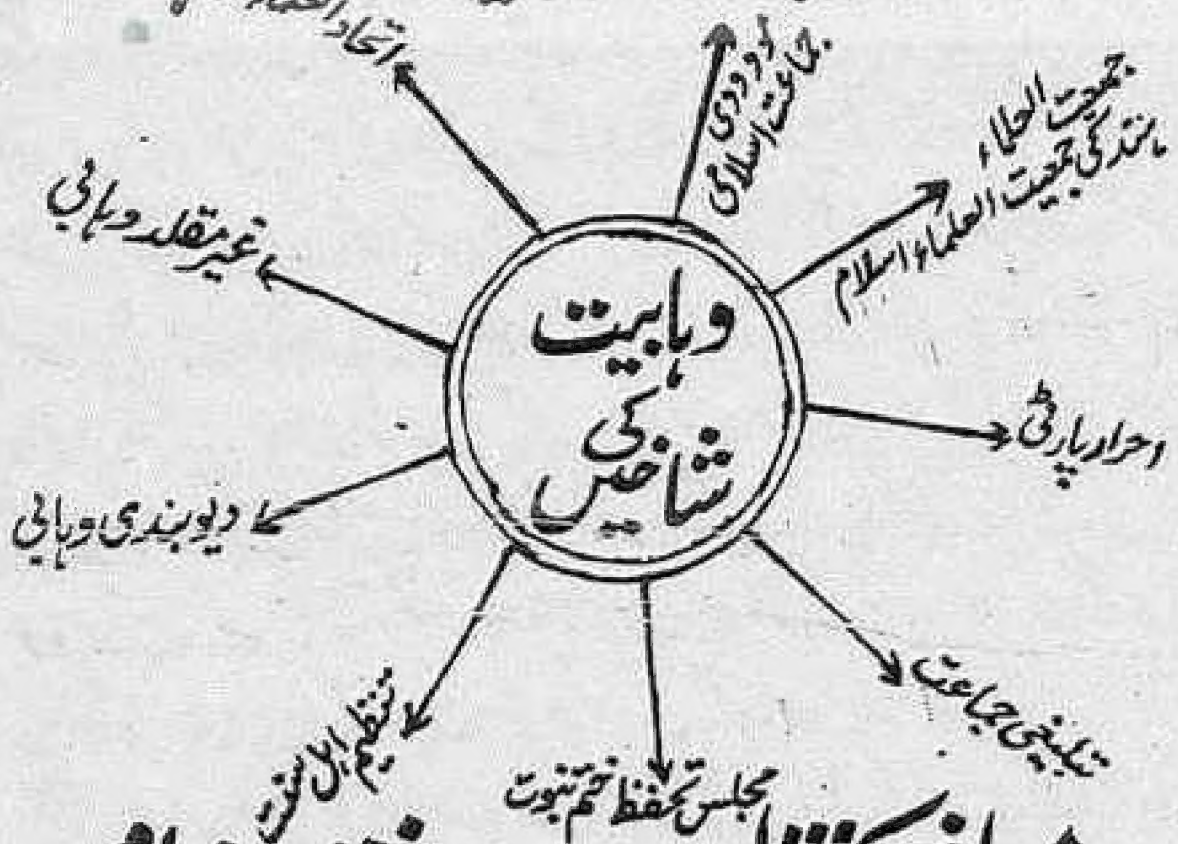 وہابیت
کی
شاخیں
جماعت اسلامی
جمعیت العلماء
کی جمعیت العلماء اسلام
احرار پارٹی
تبلیغی جماعت
مجلس تحفظ ختم نبوت
تنظیم اہل سنت
دیوبندی وہابی
غیر مقلد وہابی
اتحاد